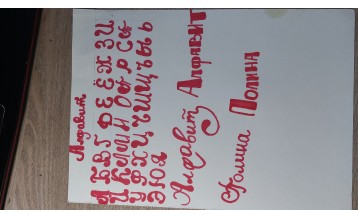 Алфавит
А Б В Г Д Е Ё Ж З И
Й К Л М Н О П Р С Т
У Ф Х Ц Ч Ш Щ Ъ Ы Ь
Э Ю Я
Алфавит Алфавит
Полина Полина